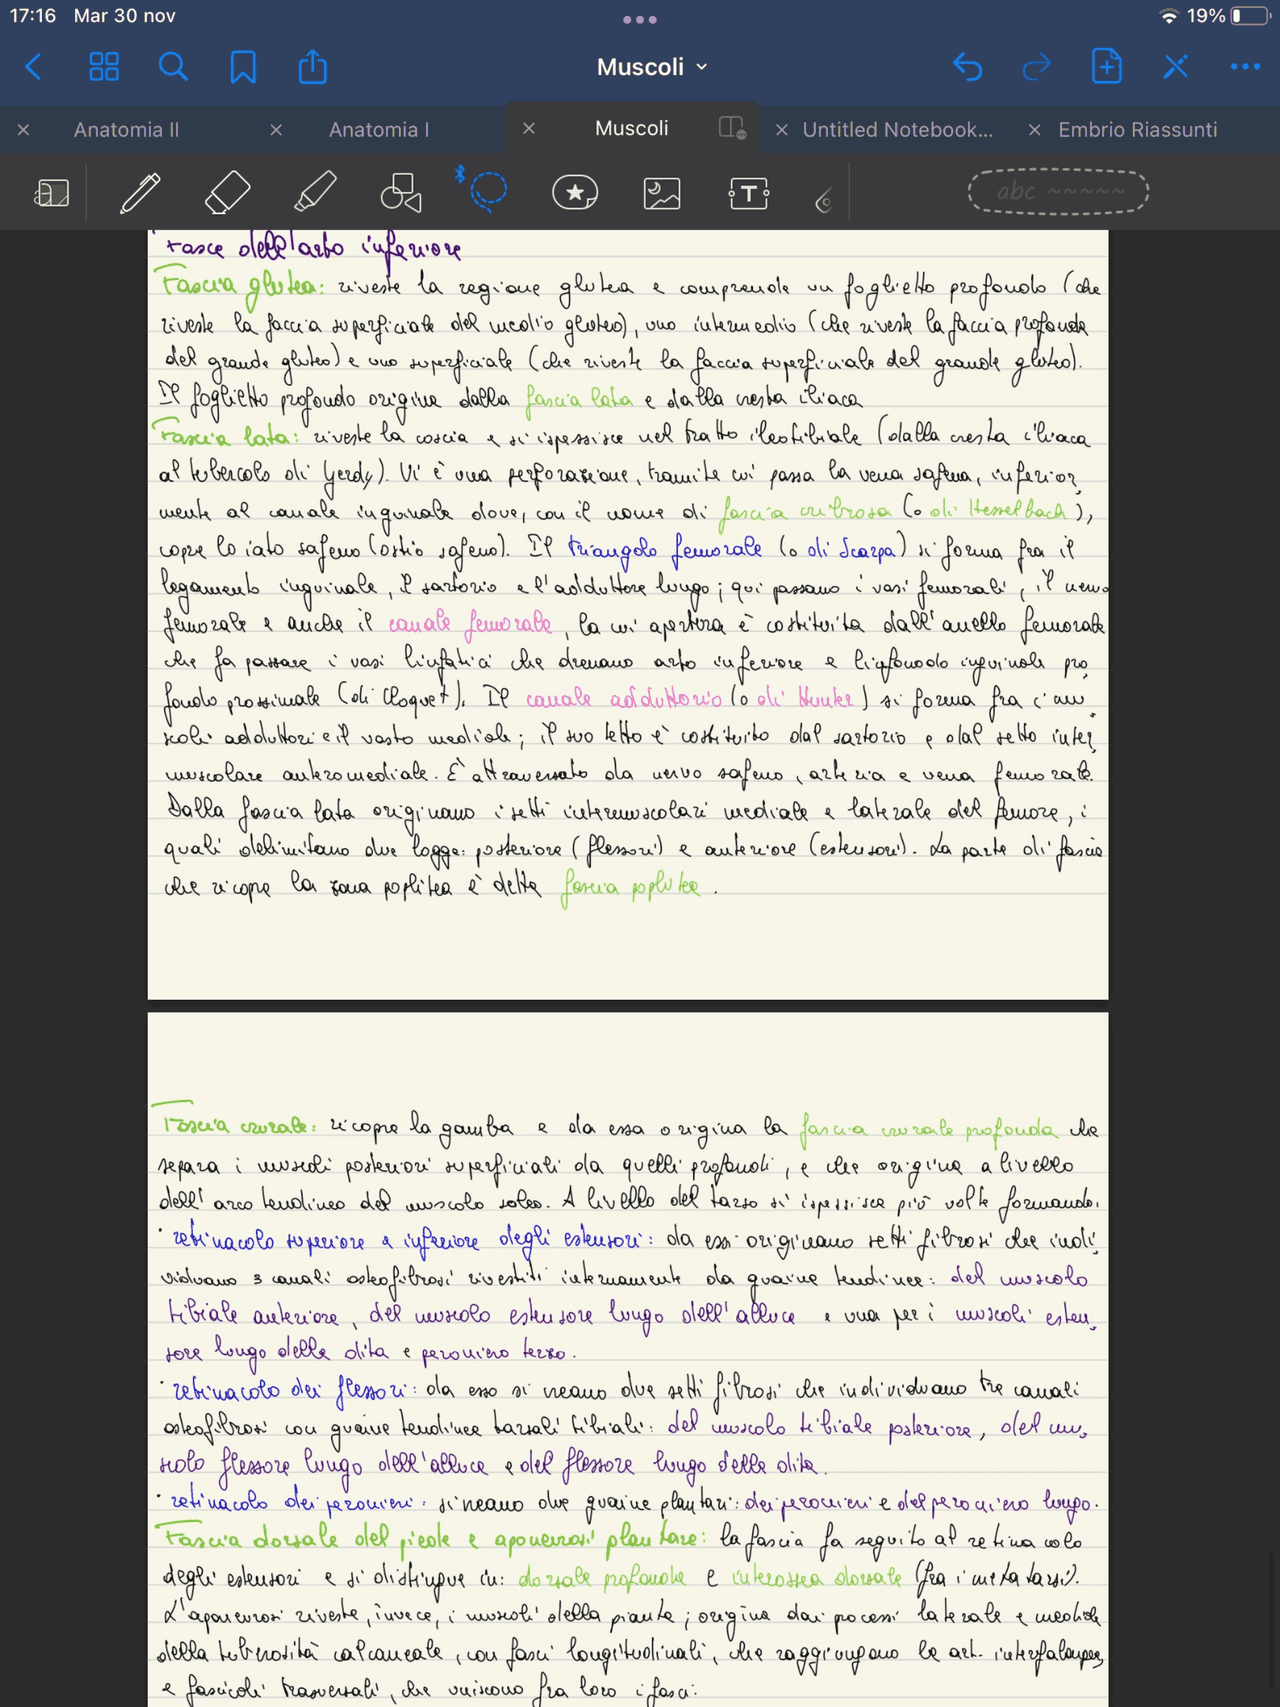 17:16 Mar 30 nov
19%
Muscoli
Anatomia II
Anatomia I
Muscoli
Untitled Notebook...
Embrio Riassunti
abc
Fasce dell'arto inferiore
Fascia glutea: riveste la regione glutea e comprende un foglietto profondo (che
riveste la faccia superficiale del medio gluteo), uno intermedio (che riveste la faccia profonda
del grande gluteo) e uno superficiale (che riveste la faccia superficiale del grande gluteo).
Il foglietto profondo origina dalla fascia lata e dalla cresta iliaca
Fascia lata: riveste la coscia e si ispessisce nel tratto ileotibiale (dalla cresta iliaca
al tubercolo di Gerdy). Vi è una perforazione, tramite cui passa la vena safena, inferior
mente al canale inguinale dove, con il nome di fascia cribrosa (o di Hesselbach),
copre lo iato safeno (ostio safeno). Il triangolo femorale (o di Scarpa) si forma fra il
legamento inguinale, il sartorio e l'adduttore lungo; qui passano i vasi femorali, il nervo
femorale e anche il canale femorale, la cui apertura è costituita dall'anello femorale
che fa passare i vasi linfatici che drenano arto inferiore e linfonodo inguinale pro
fondo prossimale (di Cloquet). Il canale adduttorio (o di Hunter) si forma fra i mu
scoli adduttori e il vasto mediale; il suo tetto è costituito dal sartorio e dal setto inter
muscolare anteromediale. È attraversato da nervo safeno, arteria e vena femorale.
Dalla fascia lata originano i setti intermuscolari mediale e laterale del femore, i
quali delimitano due logge: posteriore (flessori) e anteriore (estensori). La parte di fascia
che ricopre la zona poplitea è detta fascia poplitea.
Fascia crurale: ricopre la gamba e da essa origina la fascia crurale profonda che
separa i muscoli posteriori superficiali da quelli profondi, e che origina a livello
dell'arco tendineo del muscolo soleo. A livello del tarso si ispessisce più volte formando:
· retinacolo superiore e inferiore degli estensori: da essi originano setti fibrosi che indi
viduano 3 canali osteofibrosi rivestiti internamente da guaine tendinee: del muscolo
tibiale anteriore, del muscolo estensore lungo dell'alluce e una per i muscoli esten
sore lungo delle dita e peroniero terzo.
· retinacolo dei flessori: da esso si creano due setti fibrosi che individuano tre canali
osteofibrosi con guaine tendinee tarsali tibiali: del muscolo tibiale posteriore, del mu
scolo flessore lungo dell'alluce e del flessore lungo delle dita.
· retinacolo dei peronieri: si creano due guaine plantari: dei peronieri e del peroniero lungo.
Fascia dorsale del piede e aponeurosi plantare: la fascia fa seguito al retinacolo
degli estensori e si distingue in: dorsale profonda e interossea dorsale (fra i metatarsi).
L'aponeurosi riveste, invece, i muscoli della pianta; origina dai processi laterale e mediale
della tuberosità calcaneale, con fasci longitudinali, che raggiungono le art. interfalangee,
e fascicoli trasversali, che uniscono fra loro i fasci: